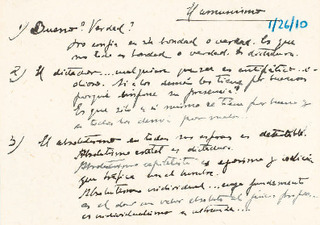 Humanismo
7/26/10
1) Bueno o Verdad?
No confía en su bondad o verdad. Es que
no tiene bondad o verdad. Es dictadura.
2) El dictador... cualquiera que sea es antipático...o
odioso. Si a los demás los tiene por buenos
porqué impone su
Es que sólo a si mismo se tiene por bueno y
a todos los demás por malos.
3) El absolutismo en todas sus esferas es detestable.
Absolutismo estatal es dictadura.
Absolutismo capitalista es egoísmo y
que trafica con el hombre.
Absolutismo individual... cuyo fundamento
es el dar un valor absoluto al juicio propio
es individualismo a ultranza...